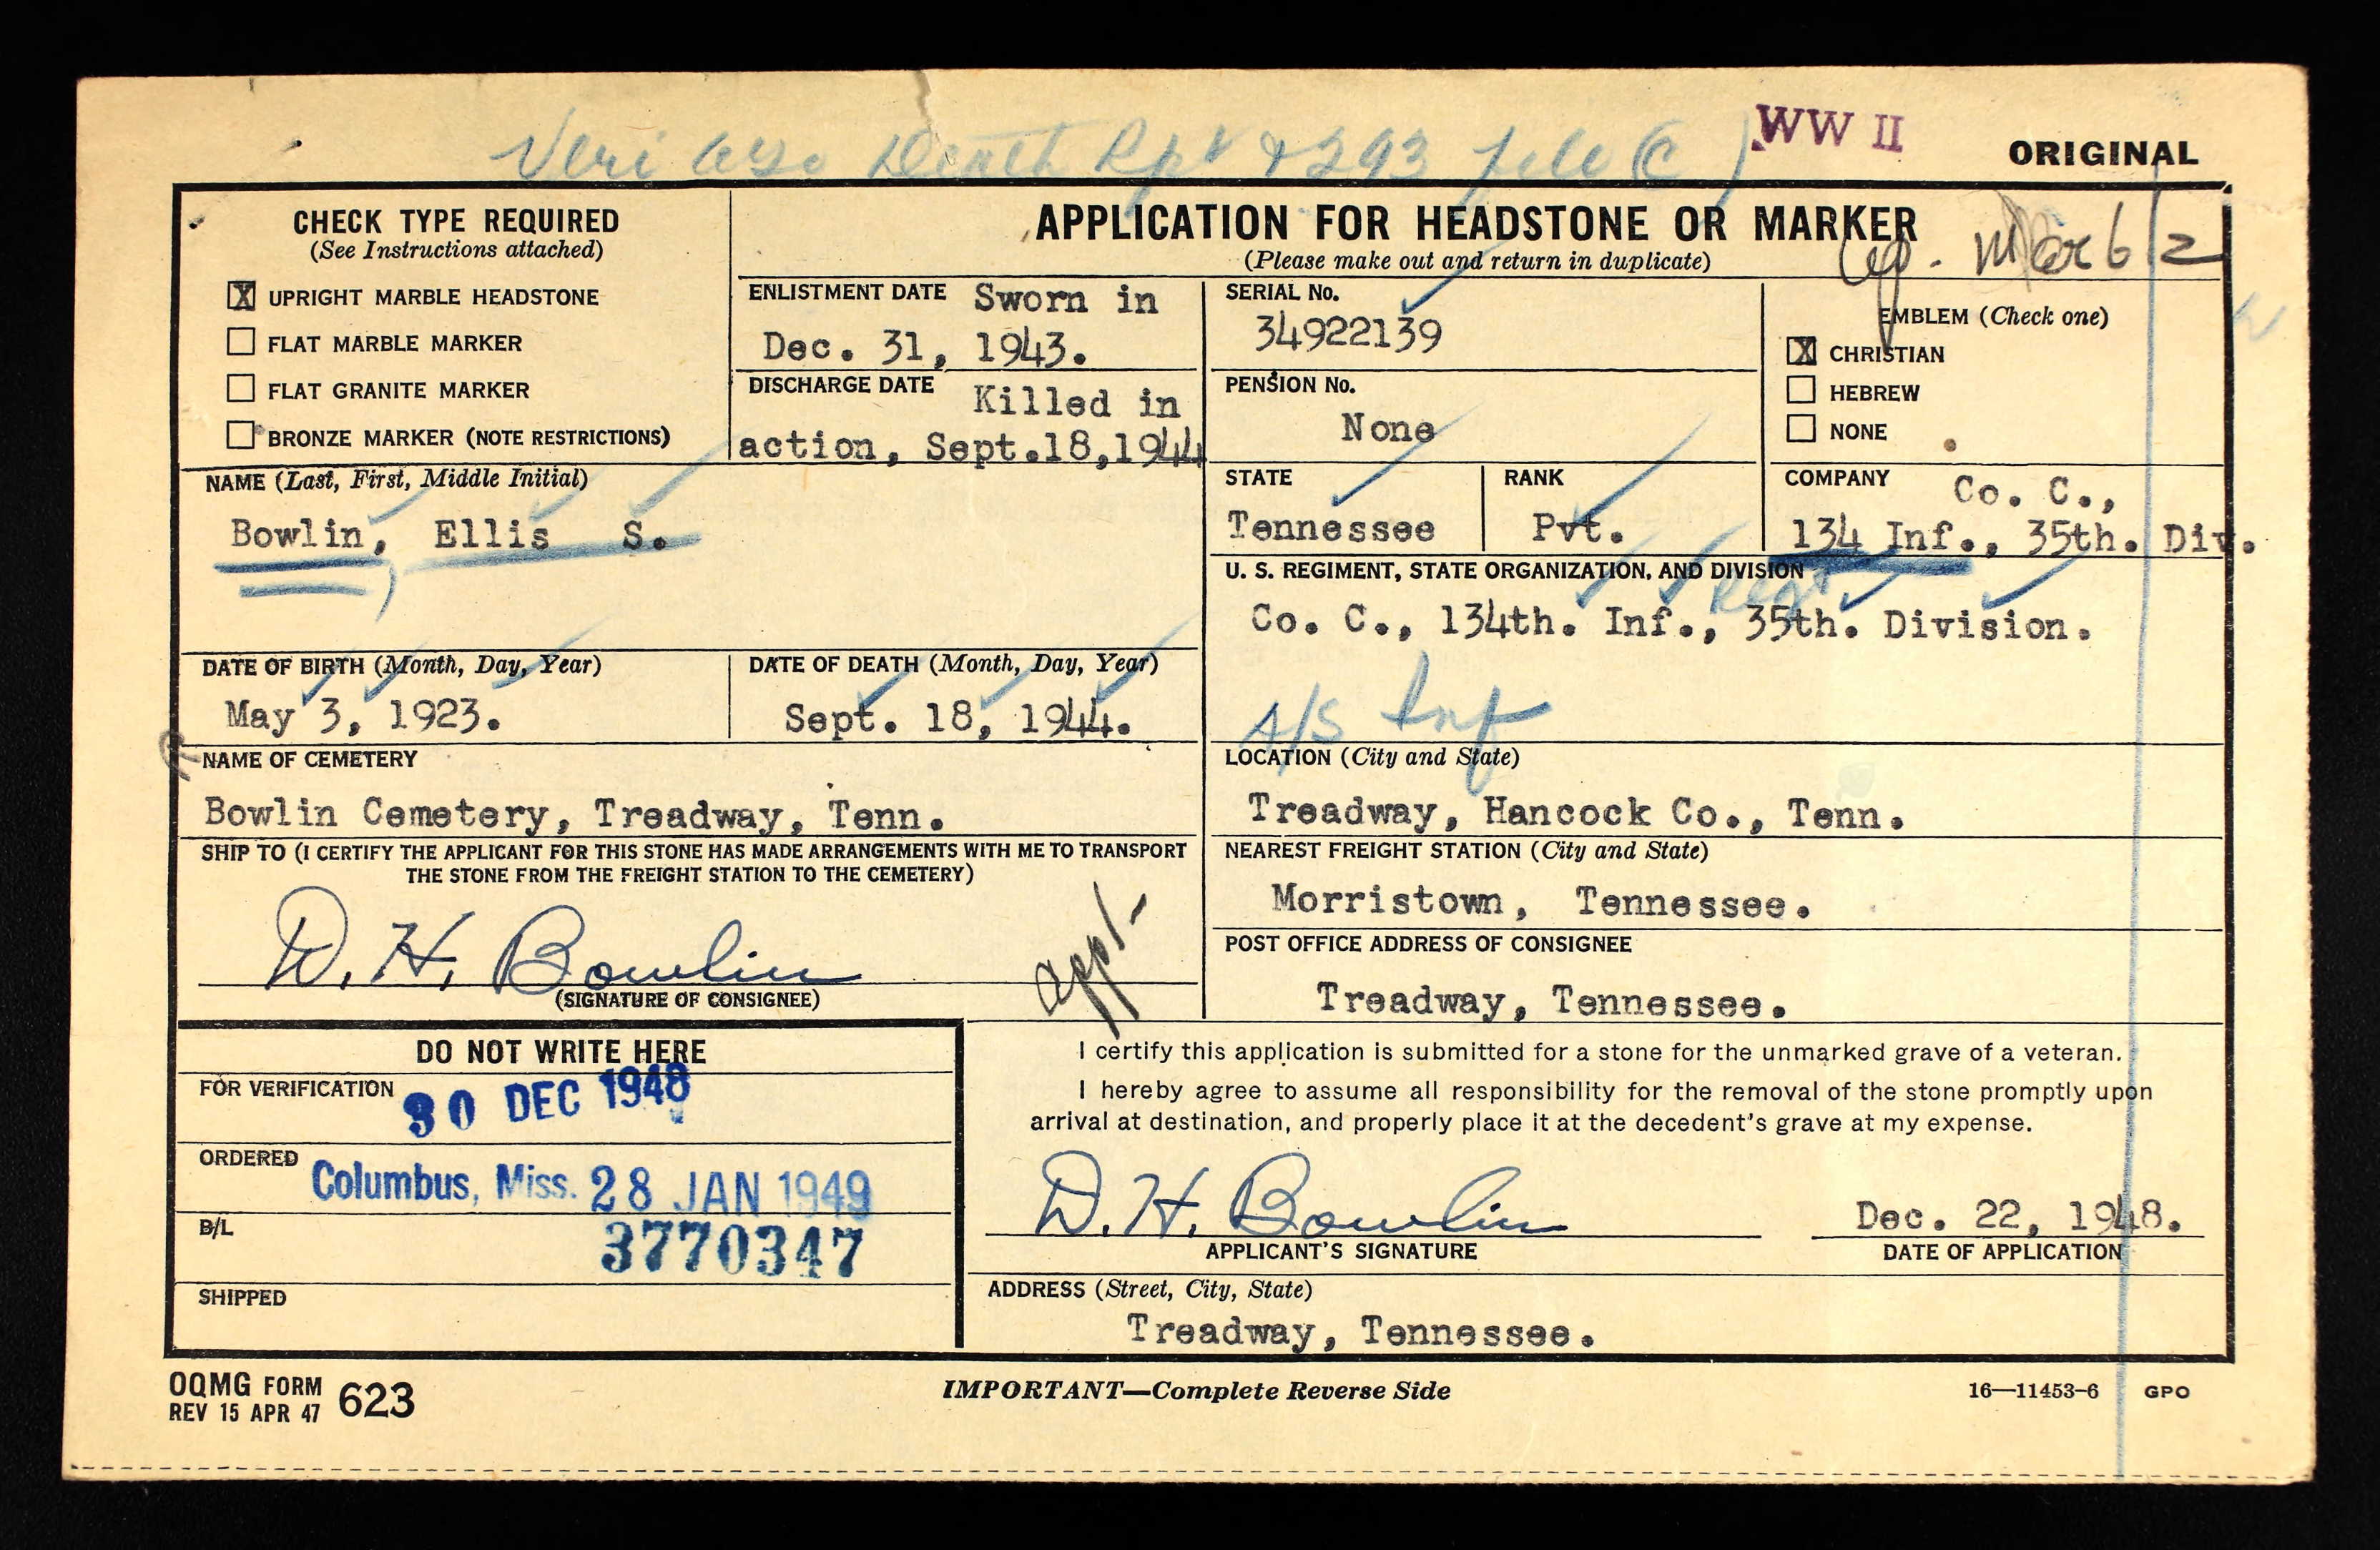 Death Rpt & 293 file (C)
WW II
ORIGINAL
CHECK TYPE REQUIRED
(See Instructions attached)
X UPRIGHT MARBLE HEADSTONE
FLAT MARBLE MARKER
FLAT GRANITE MARKER
BRONZE MARKER (NOTE RESTRICTIONS)
APPLICATION FOR HEADSTONE OR MARKER
(Please make out and return in duplicate)
ENLISTMENT DATE Sworn in
Dec. 31, 1943.
DISCHARGE DATE Killed in
action, Sept.18,1944
SERIAL No.
34922139
PENSION No.
None
EMBLEM (Check one)
X CHRISTIAN
HEBREW
NONE
NAME (Last, First, Middle Initial)
Bowlin, Ellis S.
STATE
Tennessee
RANK
Pvt.
COMPANY Co. C.,
134 Inf., 35th. Div.
U. S. REGIMENT, STATE ORGANIZATION, AND DIVISION
Regt
Co. C., 134th. Inf., 35th. Division.
A/S Inf
DATE OF BIRTH (Month, Day, Year)
May 3, 1923.
DATE OF DEATH (Month, Day, Year)
Sept. 18, 1944.
NAME OF CEMETERY
Bowlin Cemetery, Treadway, Tenn.
LOCATION (City and State)
Treadway, Hancock Co., Tenn.
SHIP TO (I CERTIFY THE APPLICANT FOR THIS STONE HAS MADE ARRANGEMENTS WITH ME TO TRANSPORT
THE STONE FROM THE FREIGHT STATION TO THE CEMETERY)
D. H. Bowlin
(SIGNATURE OF CONSIGNEE)
appl-
NEAREST FREIGHT STATION (City and State)
Morristown, Tennessee.
POST OFFICE ADDRESS OF CONSIGNEE
Treadway, Tennessee.
DO NOT WRITE HERE
FOR VERIFICATION
30 DEC 1948
ORDERED
Columbus, Miss. 28 JAN 1949
B/L
3770347
SHIPPED
I certify this application is submitted for a stone for the unmarked grave of a veteran.
I hereby agree to assume all responsibility for the removal of the stone promptly upon
arrival at destination, and properly place it at the decedent's grave at my expense.
D. H. Bowlin
APPLICANT'S SIGNATURE
Dec. 22, 1948.
DATE OF APPLICATION
ADDRESS (Street, City, State)
Treadway, Tennessee.
OQMG FORM 623
REV 15 APR 47
IMPORTANT—Complete Reverse Side
16—11453-6 GPO